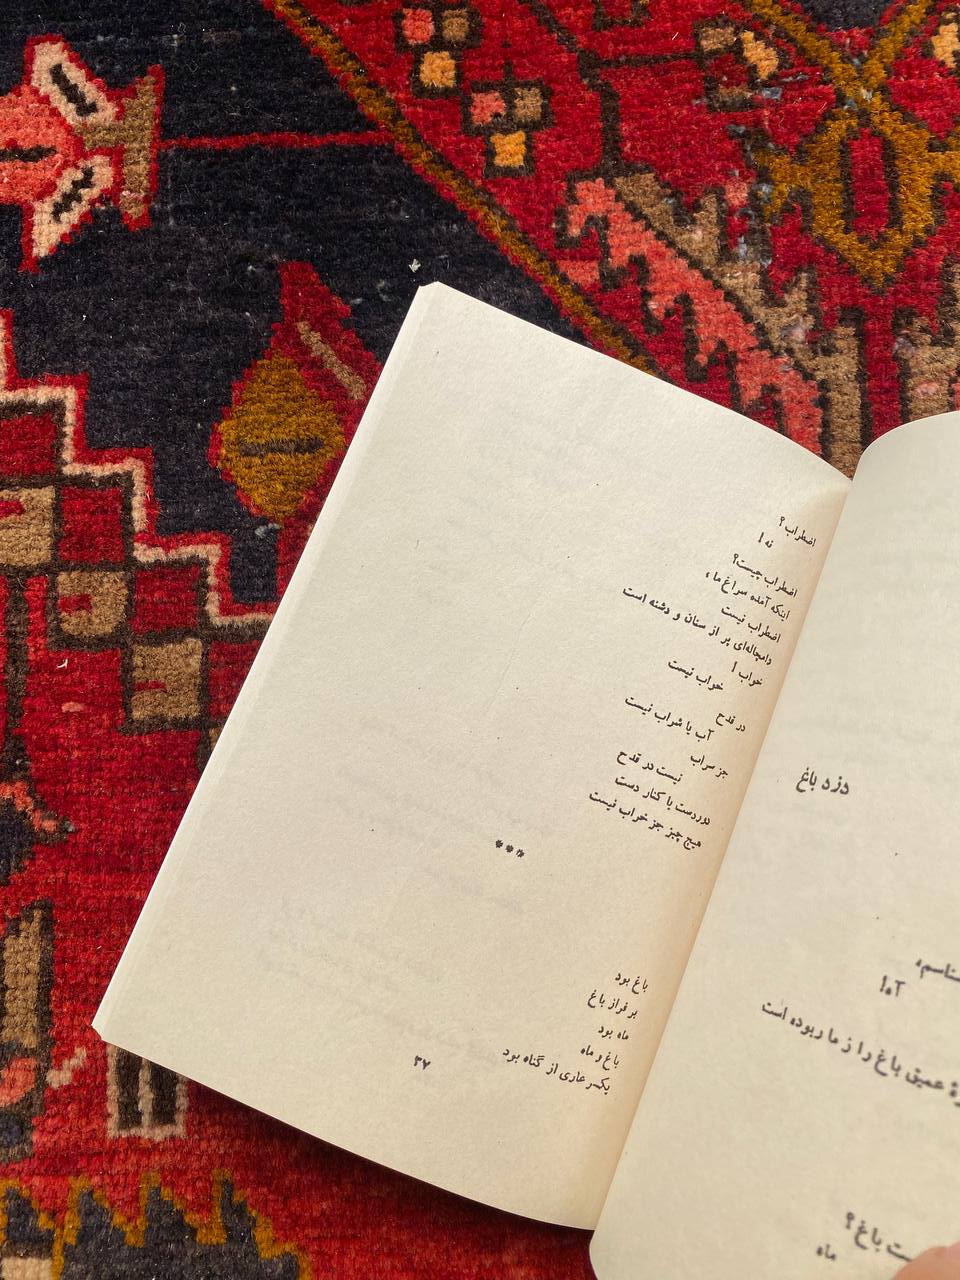 اضطراب؟
نه!
اضطراب چیست؟
اینکه آمده سراغ ما،
اضطراب نیست
دامچاله‌ای پر از سنان و دشنه است
خواب!
خواب نیست
در قدح
آب یا شراب نیست
جز سراب
نیست در قدح
دوردست یا کنار دست
هیچ چیز جز خراب نیست
***
باغ بود
بر فراز باغ
ماه بود
باغ و ماه
یکسر عاری از گناه بود
۳۷
دزد باغ
آه!
عمیق باغ را از ما ربوده است
باغ؟
ماه